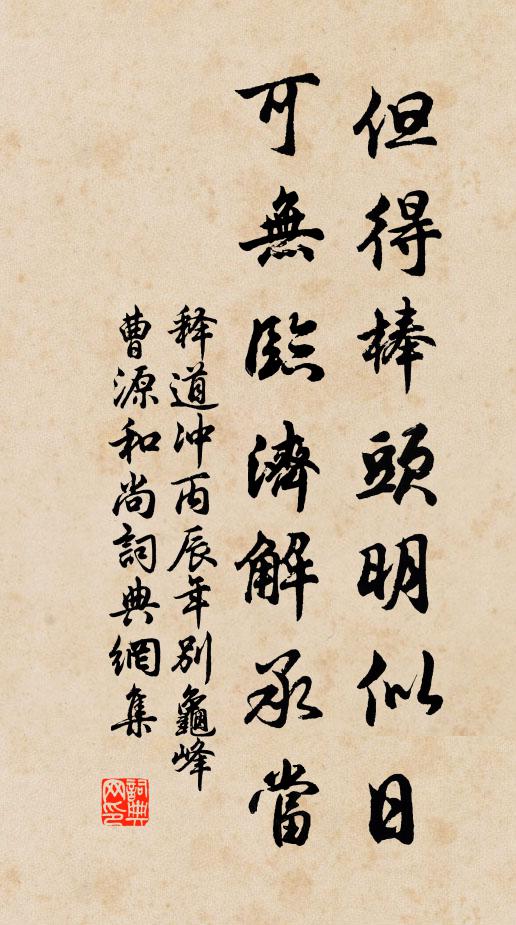 但得棒頭明似日
可無臨濟解承當
释道沖丙辰年别龜峰
曹源和尚詞典網集
詞典网印